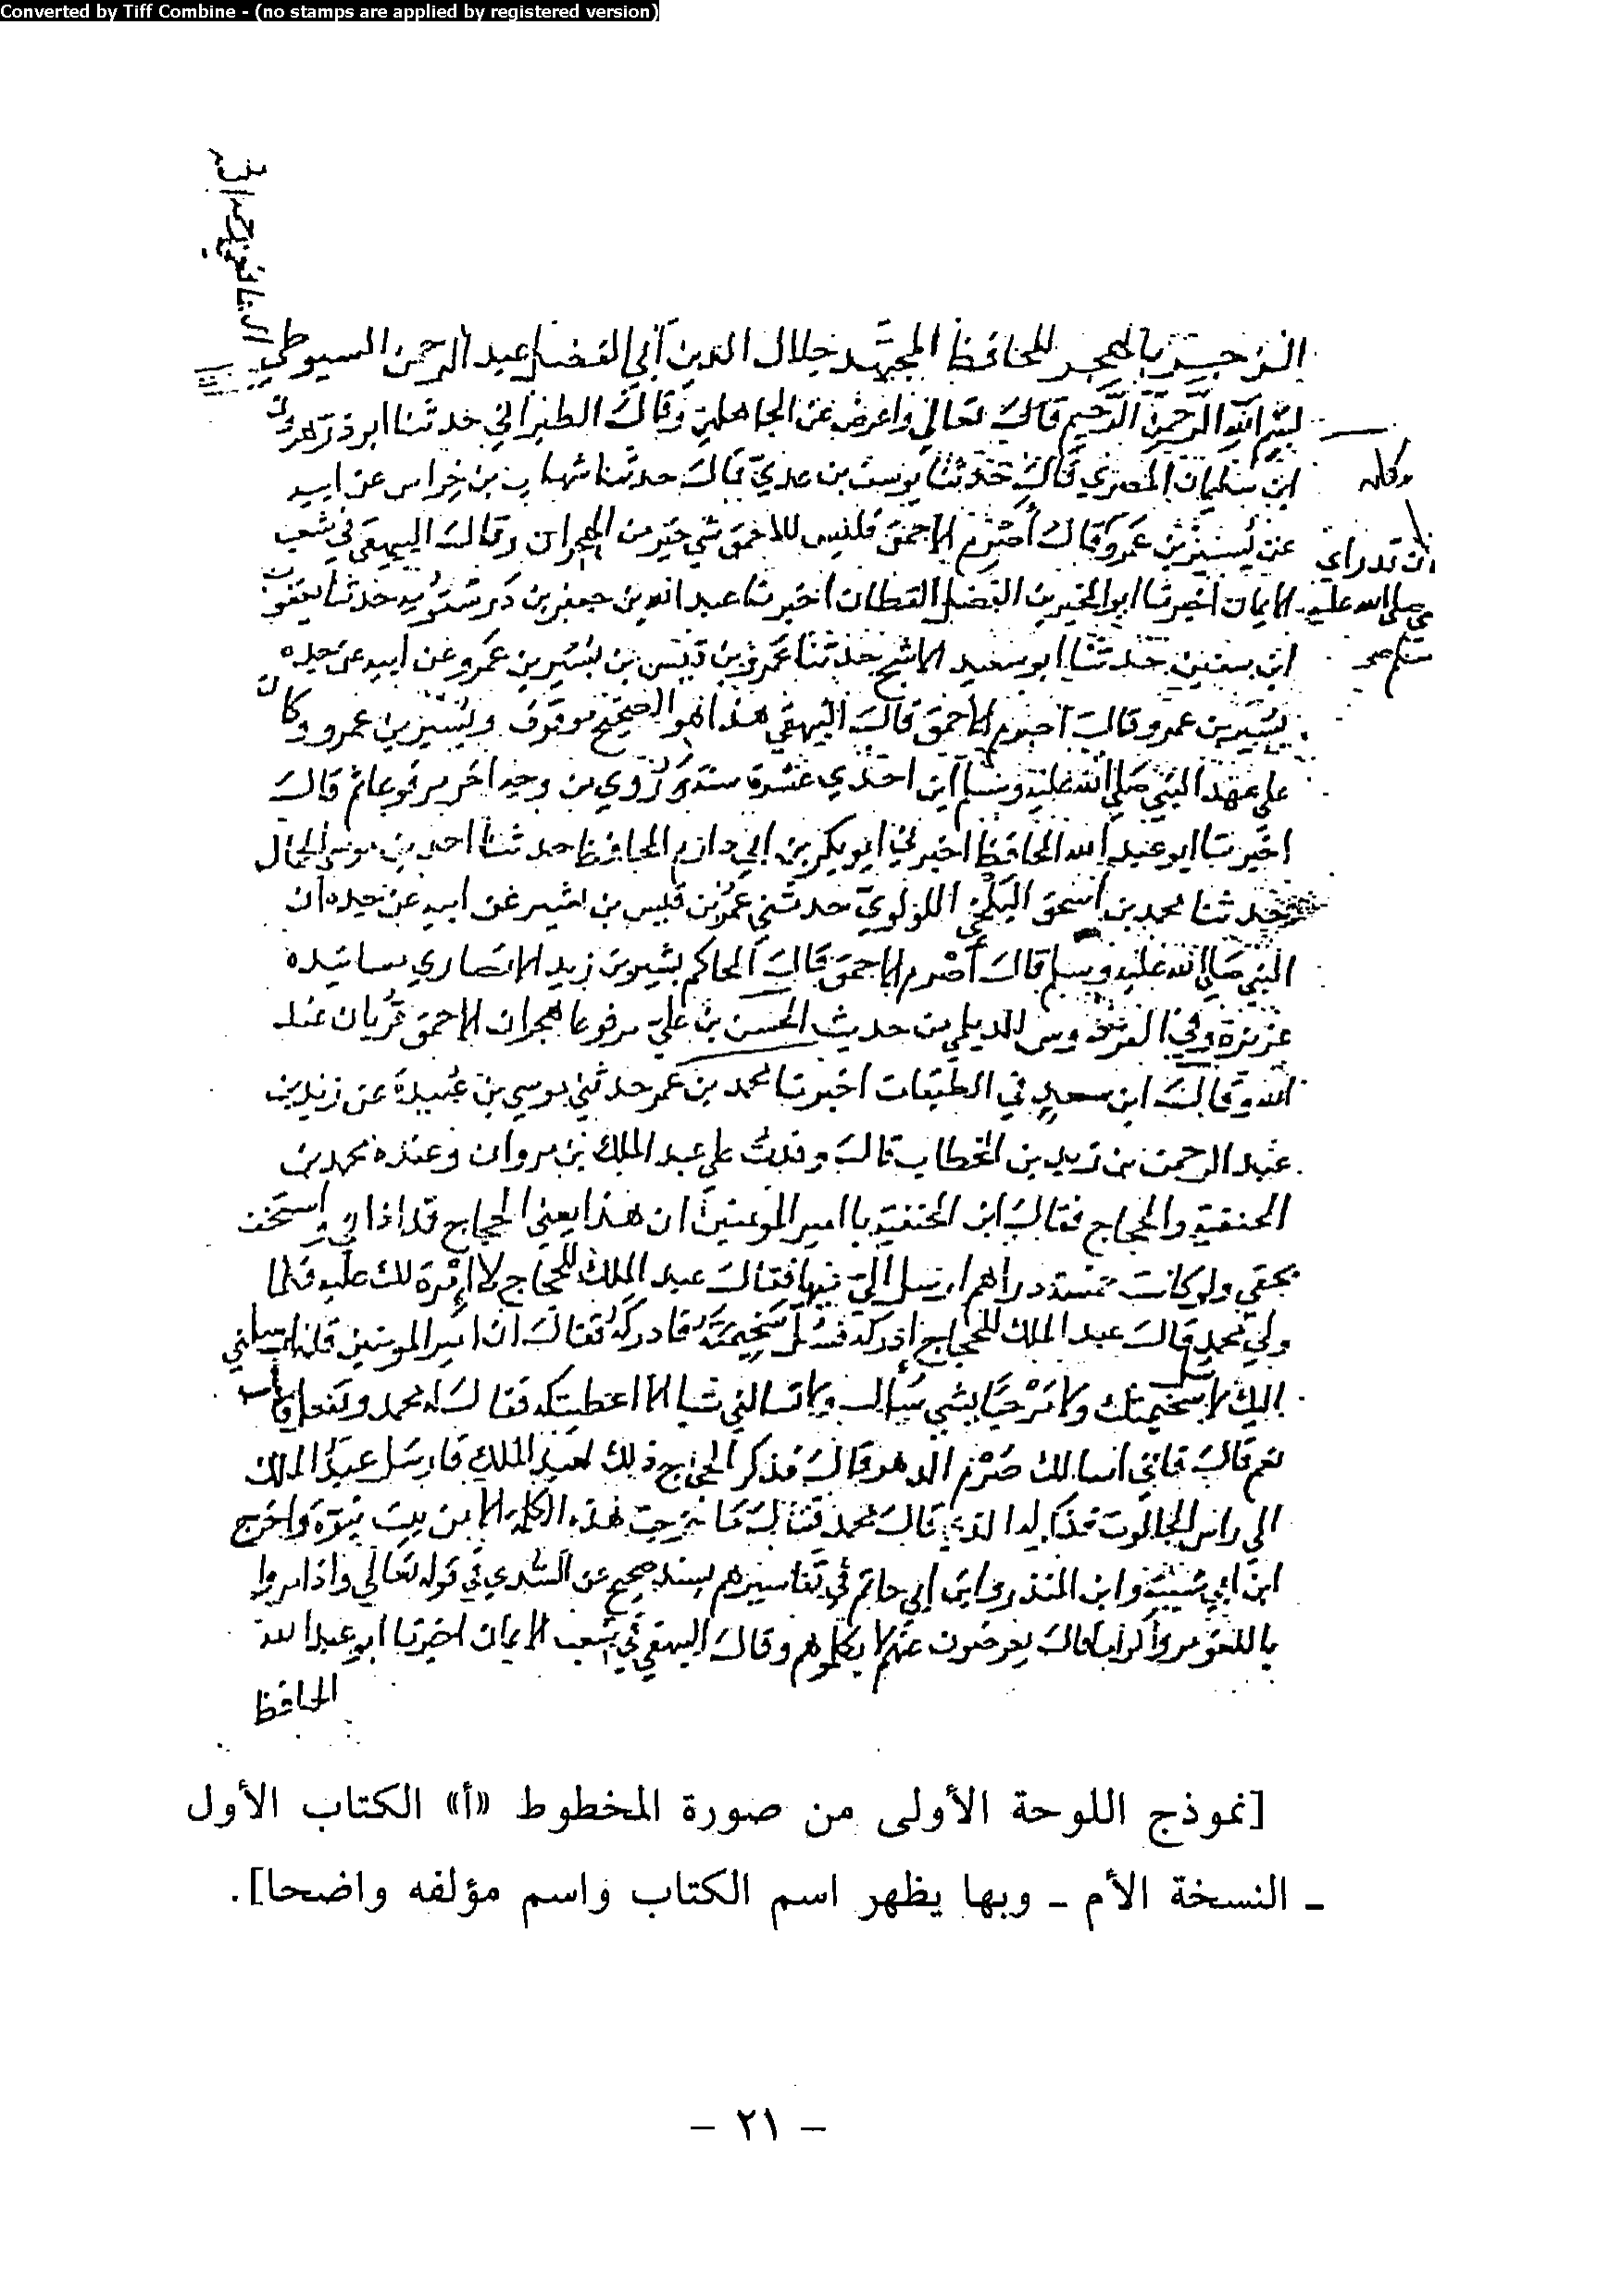 Converted by Tiff Combine - (no stamps are applied by registered version)
الزجر بالهجر للحافظ المجتهد جلال الدين أبي الفضل عبد الرحمن السيوطي
بسم الله الرحمن الرحيم قال تعالى واعرض عن الجاهلين وقال الطبراني حدثنا ابو ذر هرون
ابن سليمان المصري قال حدثنا يوسف بن عدي قال حدثنا شهاب بن خراس عن ابيه
عن يسير بن عمرو قال أصرم الاحمق فليس للاحمق شي خير من الهجران وقال البيهقي في شعب
الايمان اخبرنا ابو الحسين بن الفضل القطان اخبرنا عبد الله بن جعفر بن درستويه حدثنا يعقوب
ابن سفين حدثنا ابو سعيد الاشج حدثنا عمرو بن قيس بن يسير بن عمرو عن ابيه عن جده
يسير بن عمرو قال اصرم الاحمق قال البيهقي هذا هو الصحيح موقوف ويسير بن عمرو وكان
علي عهد النبي صلي الله عليه وسلم ابن احدي عشرة سنة وروي من وجه اخر مرفوعا ثم قال
اخبرنا ابو عبد الله الحافظ اخبرني ابو بكر بن ابي دارم الحافظ حدثنا احمد بن موسى الحمال
حدثنا محمد بن اسحق البلخي اللولوي حدثني عمر بن قيس بن بشير عن ابيه عن جده ان
النبي صلي الله عليه وسلم قال أصرم الاحمق قال الحاكم بشير بن زيد الانصاري مسانيده
عزيزة وفي الفردوس للديلمي من حديث الحسن بن علي مرفوعا هجران الاحمق قربان عند
الله وقال ابن سعد في الطبقات اخبرنا محمد بن عمر حدثني موسي بن عبيدة عن زيد بن
عبد الرحمن بن زيد بن الخطاب قال وفدت علي عبد الملك بن مروان وعنده محمد بن
الحنفية والحجاج فقال ابن الحنفية يا امير المومنين ان هذا يعني الحجاج قد اذاني واستخف
بحقي ولو كانت خمسة دراهم ارسل الي فيها فقال عبد الملك للحجاج لا إمرة لك عليه فلما
ولي محمد قال عبد الملك للحجاج ادركه فسل سخيمته فادركه فقال ان امير المومنين قد ارسلني
اليك لاسل سخيمتك ولا مرحبا بشي ساك ولا تسالني شيا الا اعطيتكه فقال له محمد وتفعل قال
نعم قال فاني اسالك صرم الدهر قال فذكر الحجاج ذلك لعبد الملك فارسل عبد الملك
الي راس الجالوت فذكر له الذي قال محمد فقال ما خرجت هذه الكلمة الا من بيت نبوة واخرج
ابن ابي شيبة وابن المنذر وابن ابي حاتم في تفاسيرهم بسند صحيح عن السدي في قوله تعالي واذا مروا
باللغو مروا كراما قال يعرضون عنهم لا يكلموهم وقال البيهقي في شعب الايمان اخبرنا ابو عبد الله
الحافظ
[نموذج اللوحة الأولى من صورة المخطوط «أ» الكتاب الأول
ـ النسخة الأم ـ وبها يظهر اسم الكتاب واسم مؤلفه واضحا].
– ٢١ –